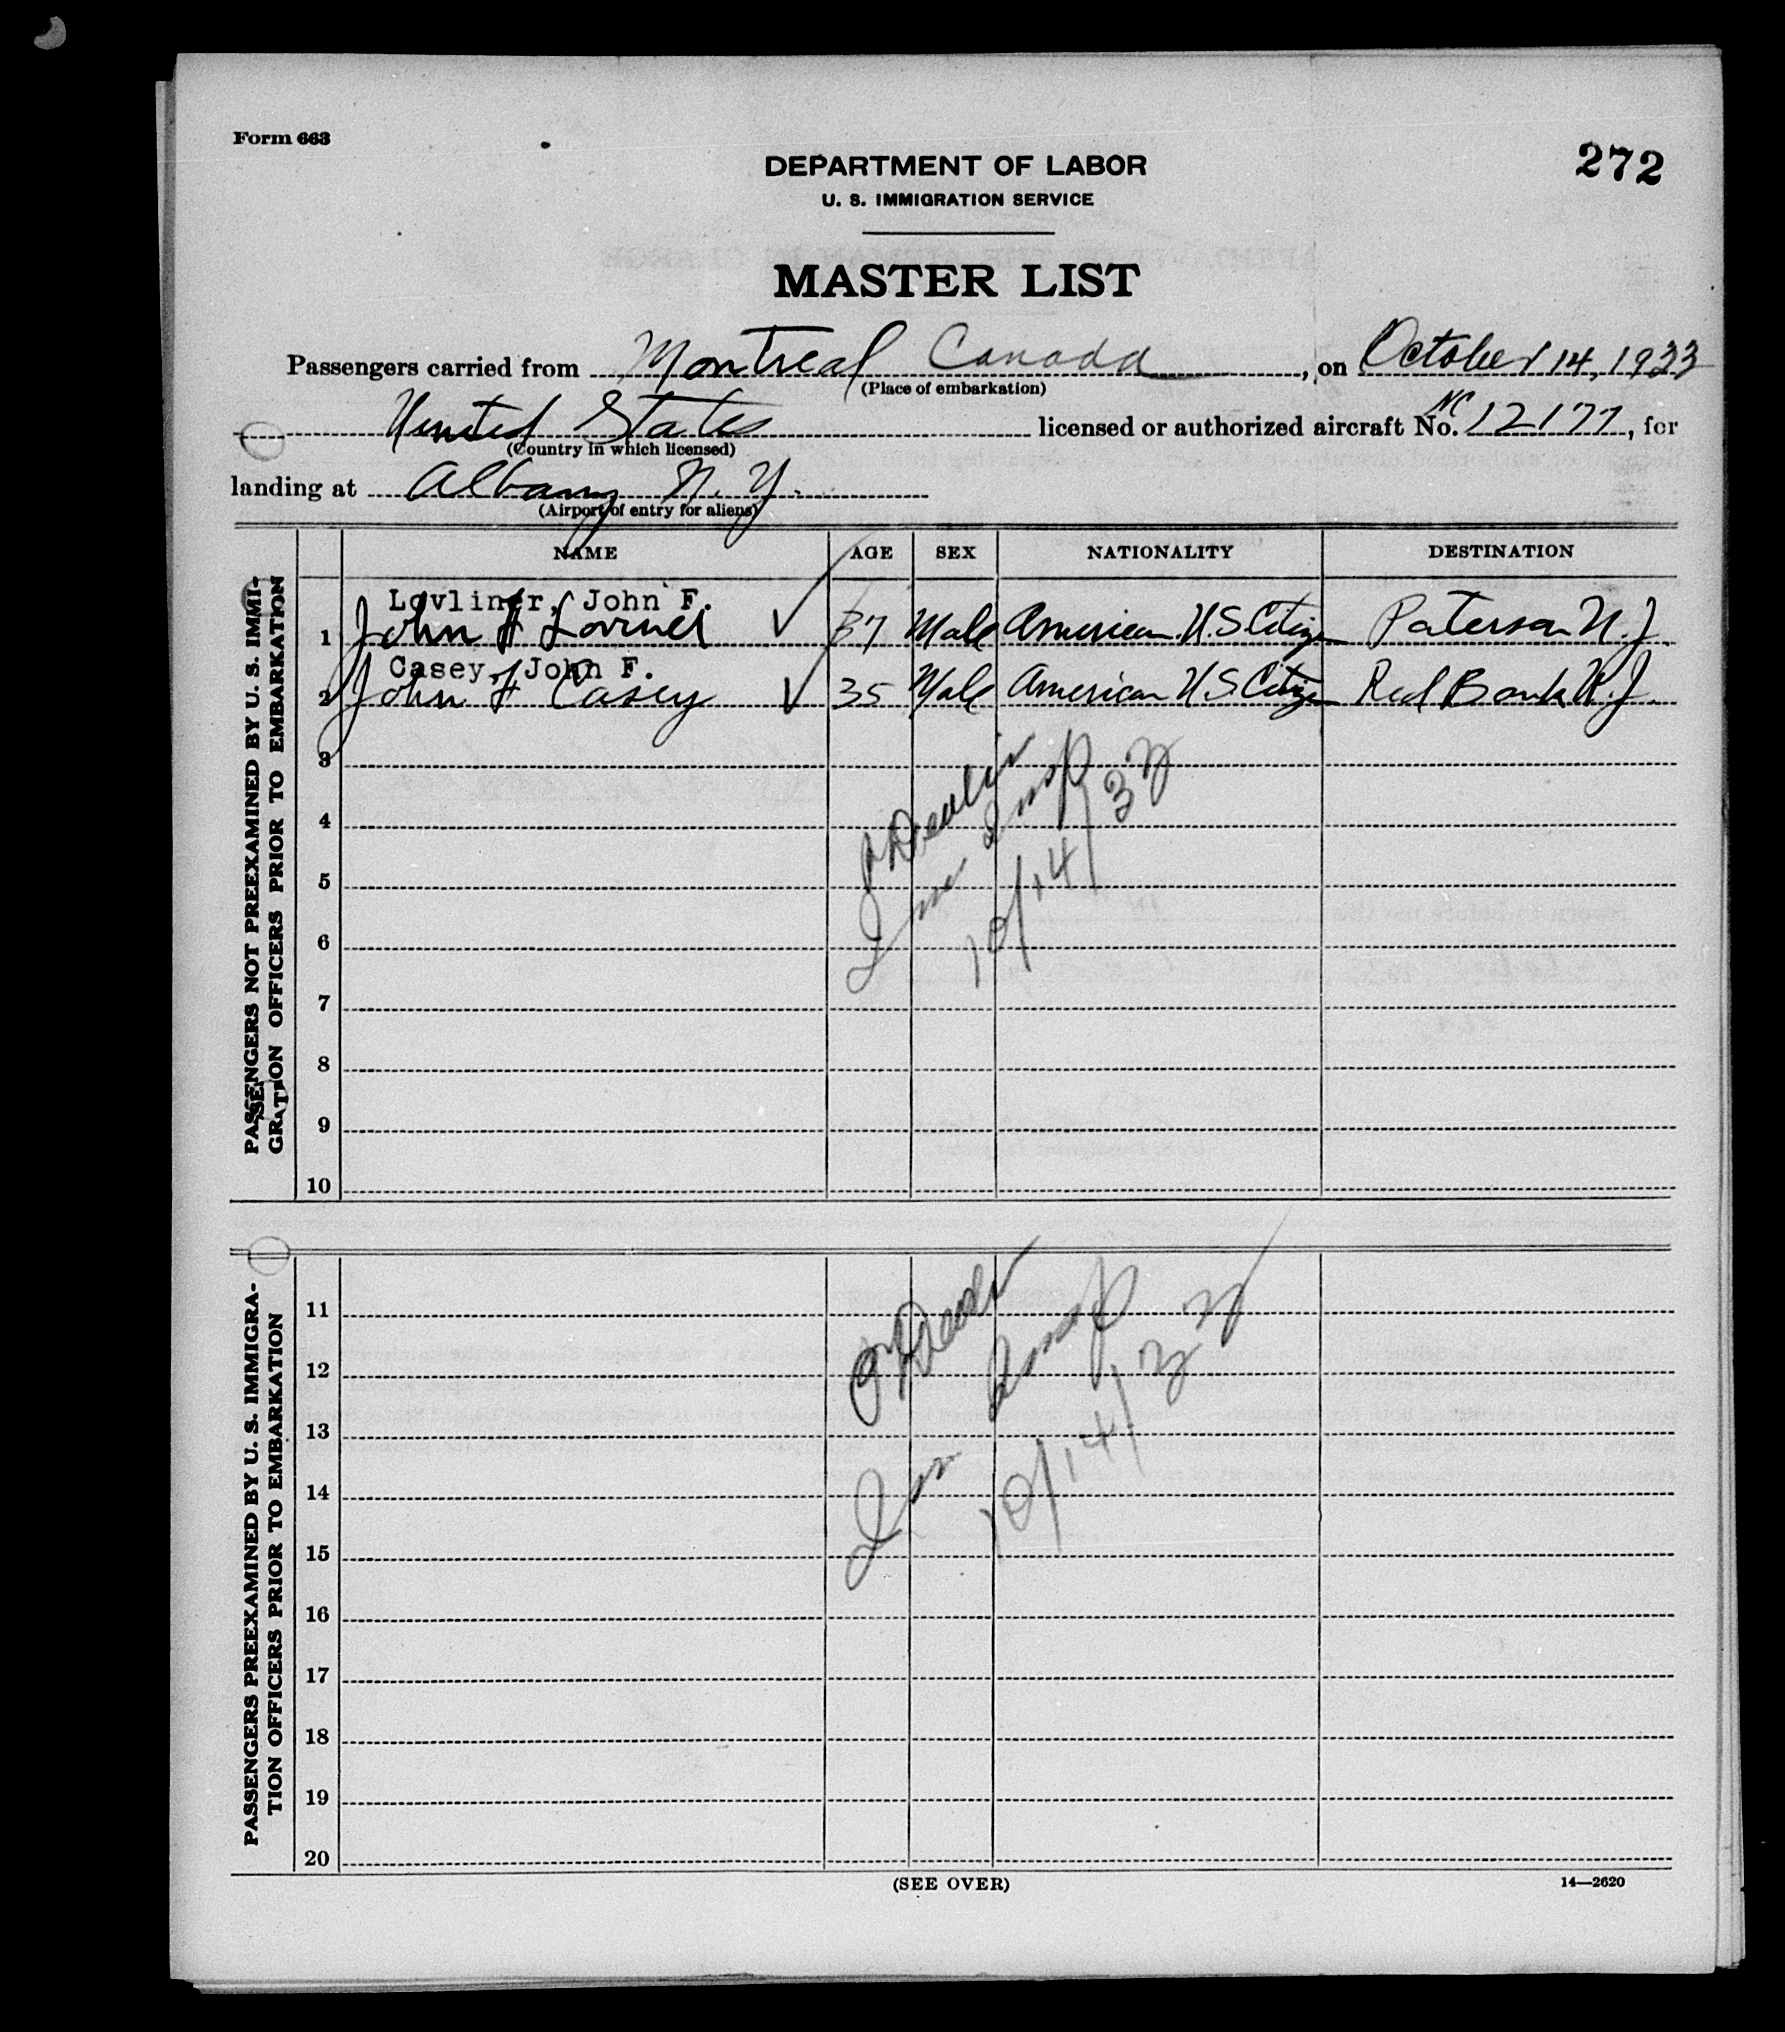 Form 663
272
DEPARTMENT OF LABOR
U. S. IMMIGRATION SERVICE
MASTER LIST
Passengers carried from Montreal Canada, on October 14, 1933
(Place of embarkation)
United States licensed or authorized aircraft No. NC 12177, for
(Country in which licensed)
landing at Albany N. Y.
(Airport of entry for aliens)
NAME AGE SEX NATIONALITY DESTINATION
PASSENGERS NOT PREEXAMINED BY U. S. IMMI-
GRATION OFFICERS PRIOR TO EMBARKATION
Lovliner, John F.
1 John F 37 Male American U.S Citizen Paterson N.J.
Casey, John F.
2 John F Casey 35 Male American U.S. Citizen Red Bank N.J.
3
4
5
6
7
8
9
10
Imm Insp
10/14/33
PASSENGERS PREEXAMINED BY U. S. IMMIGRA-
TION OFFICERS PRIOR TO EMBARKATION
11
12
13
14
15
16
17
18
19
20
Imm Insp
10/14/33
(SEE OVER)
14—2620